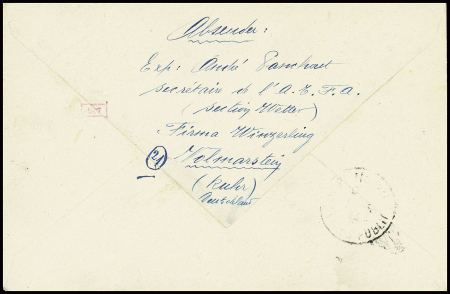 Absender:
Exp: André Panchaut
secrétaire de l'A.E.F.A.
(section Wetter)
Firma Winzerling
(21) Volmarstein
(Ruhr)
Deutschland